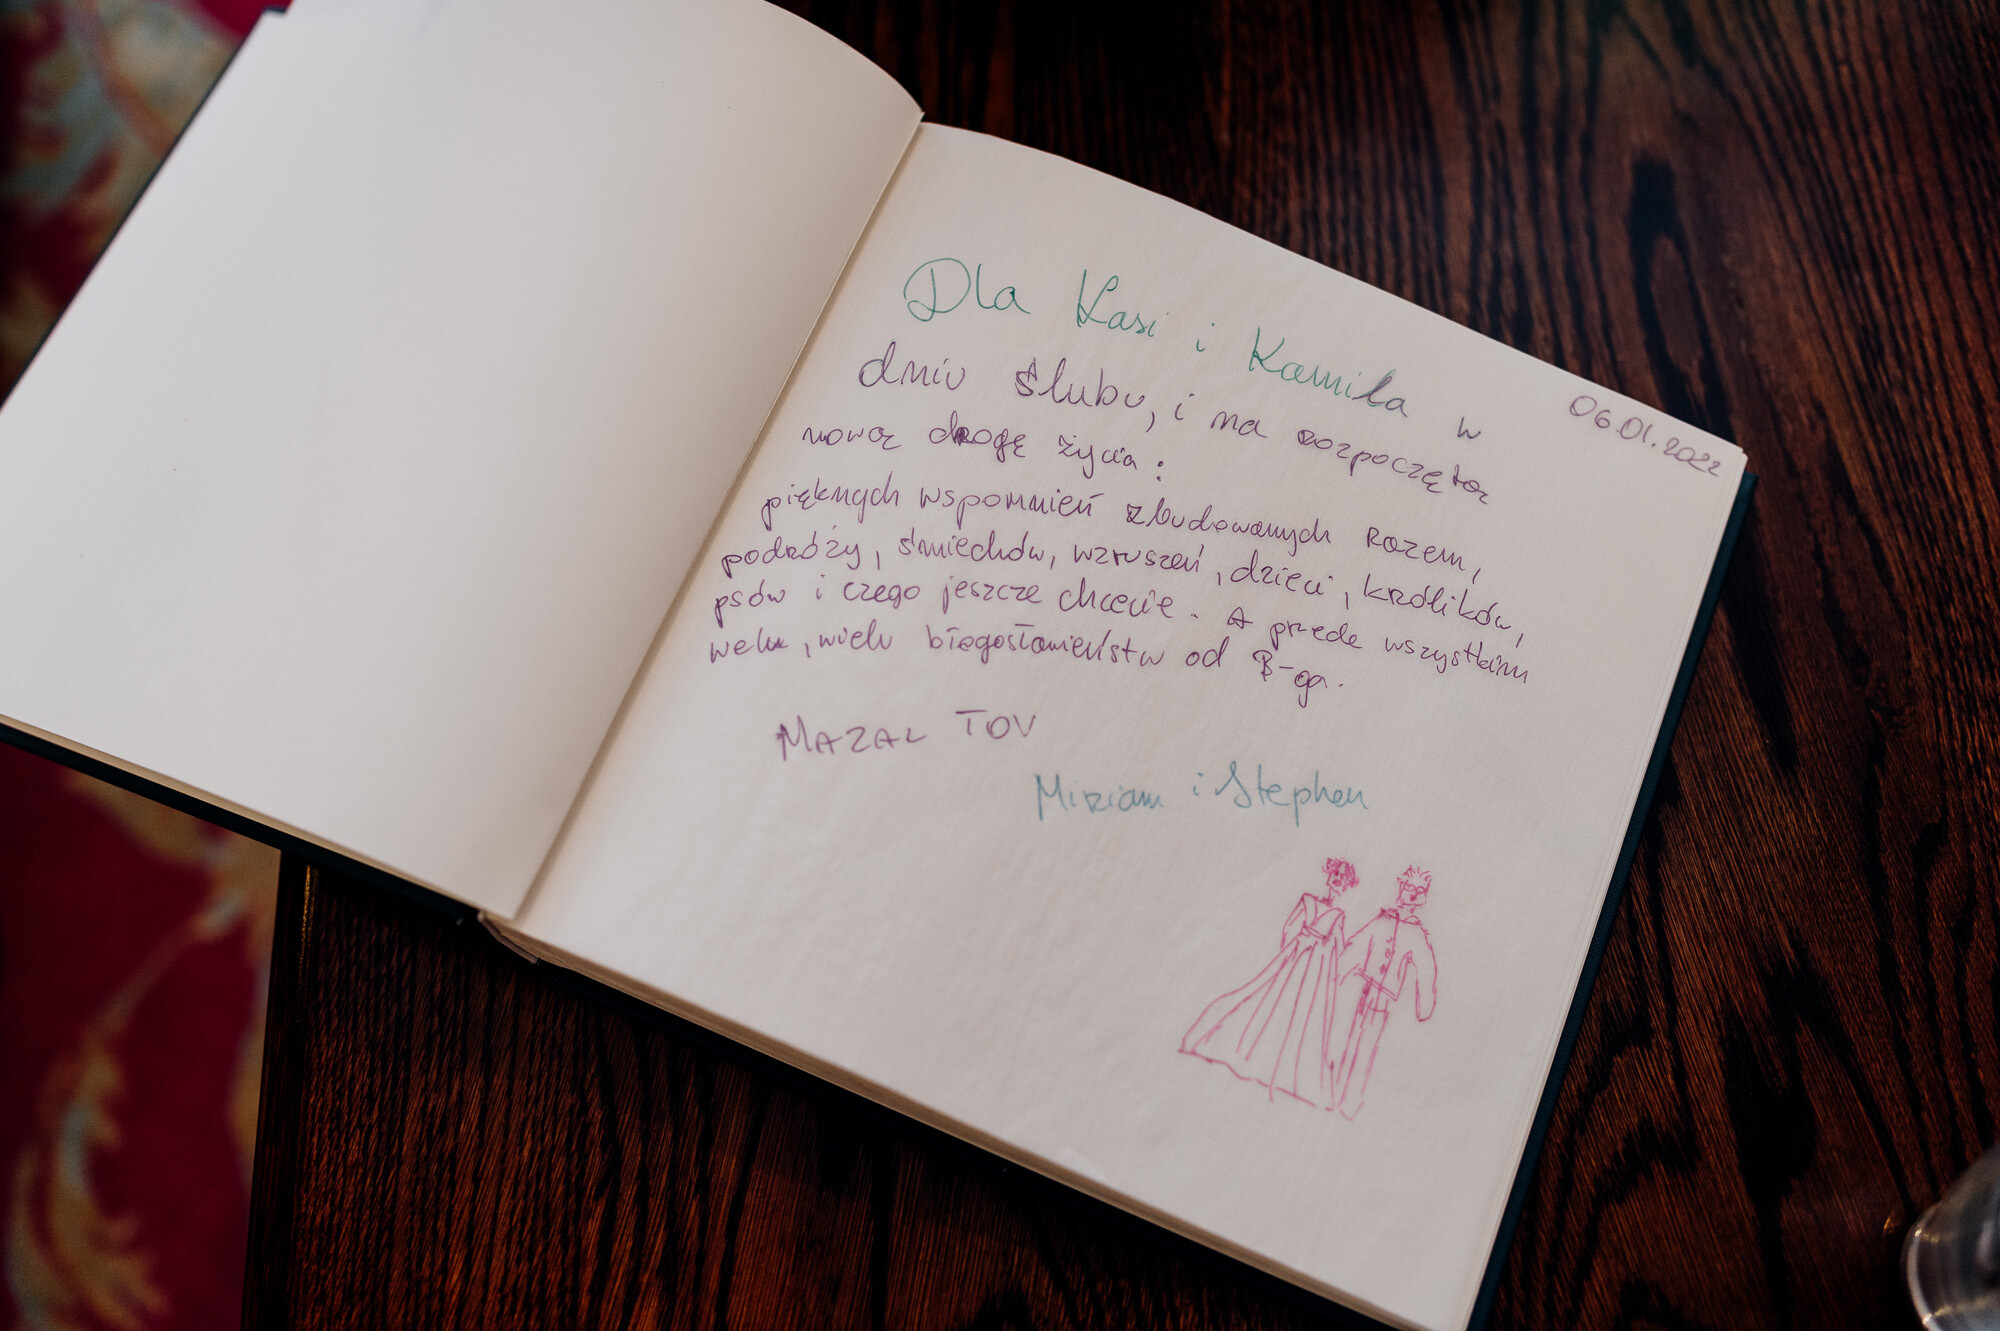 06.01.2022
Dla Kasi i Kamila w
dniu ślubu, i na rozpoczętą
nową drogę życia:
pięknych wspomnień zbudowanych razem,
podróży, śmiechów, wzruszeń, dzieci, królików,
psów i czego jeszcze chcecie. A przede wszystkim
wielu, wielu błogosłowieństw od B-ga.
MAZAL TOV
Miriam i Stephen